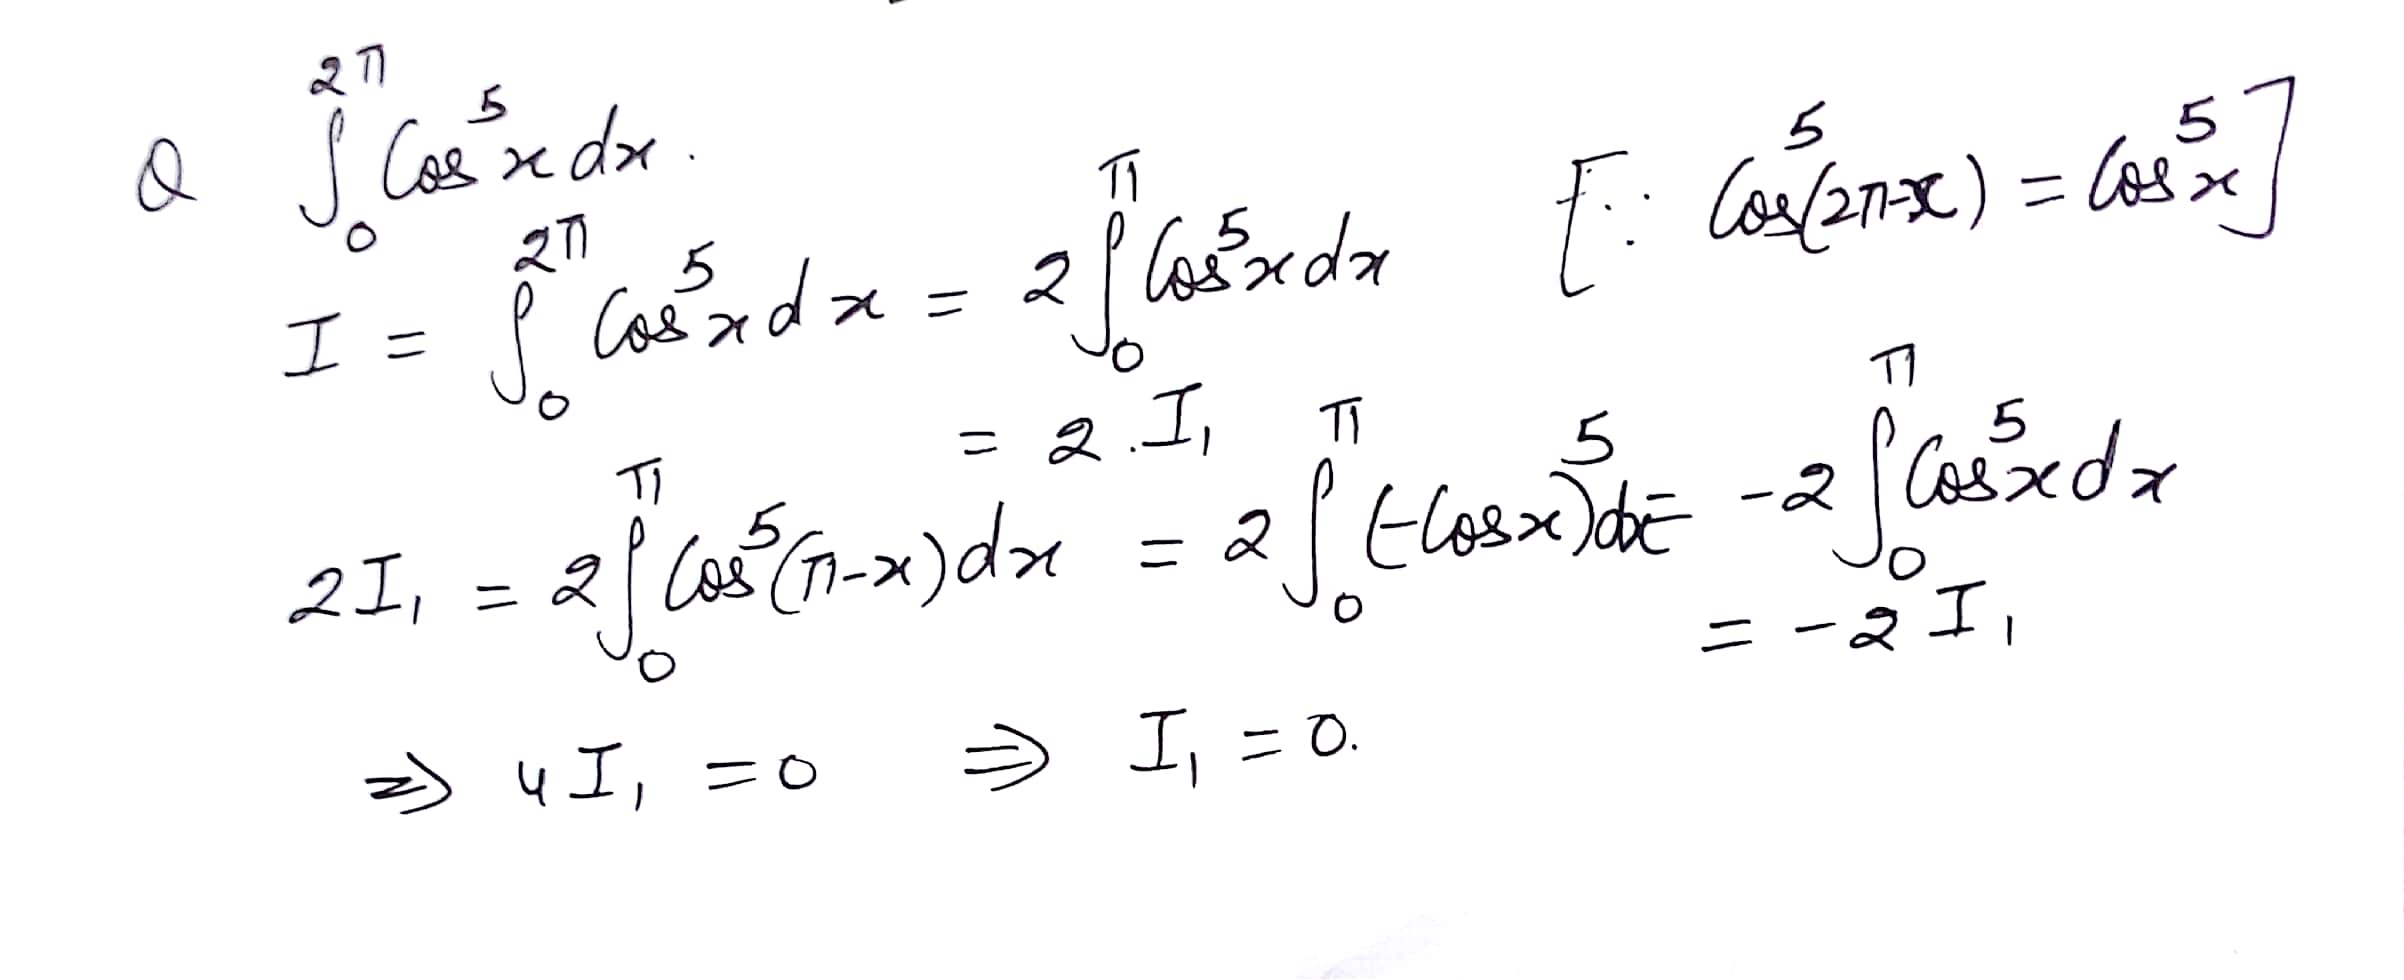 Q ∫₀^{2π} Cos⁵x dx.
I = ∫₀^{2π} Cos⁵x dx = 2∫₀^{π} Cos⁵x dx [∵ Cos⁵(2π-x) = Cos⁵x]
= 2.I₁
2I₁ = 2∫₀^{π} Cos⁵(π-x)dx = 2∫₀^{π} (-Cosx)⁵dx = -2∫₀^{π} Cos⁵x dx
= -2I₁
⇒ 4I₁ = 0 ⇒ I₁ = 0.